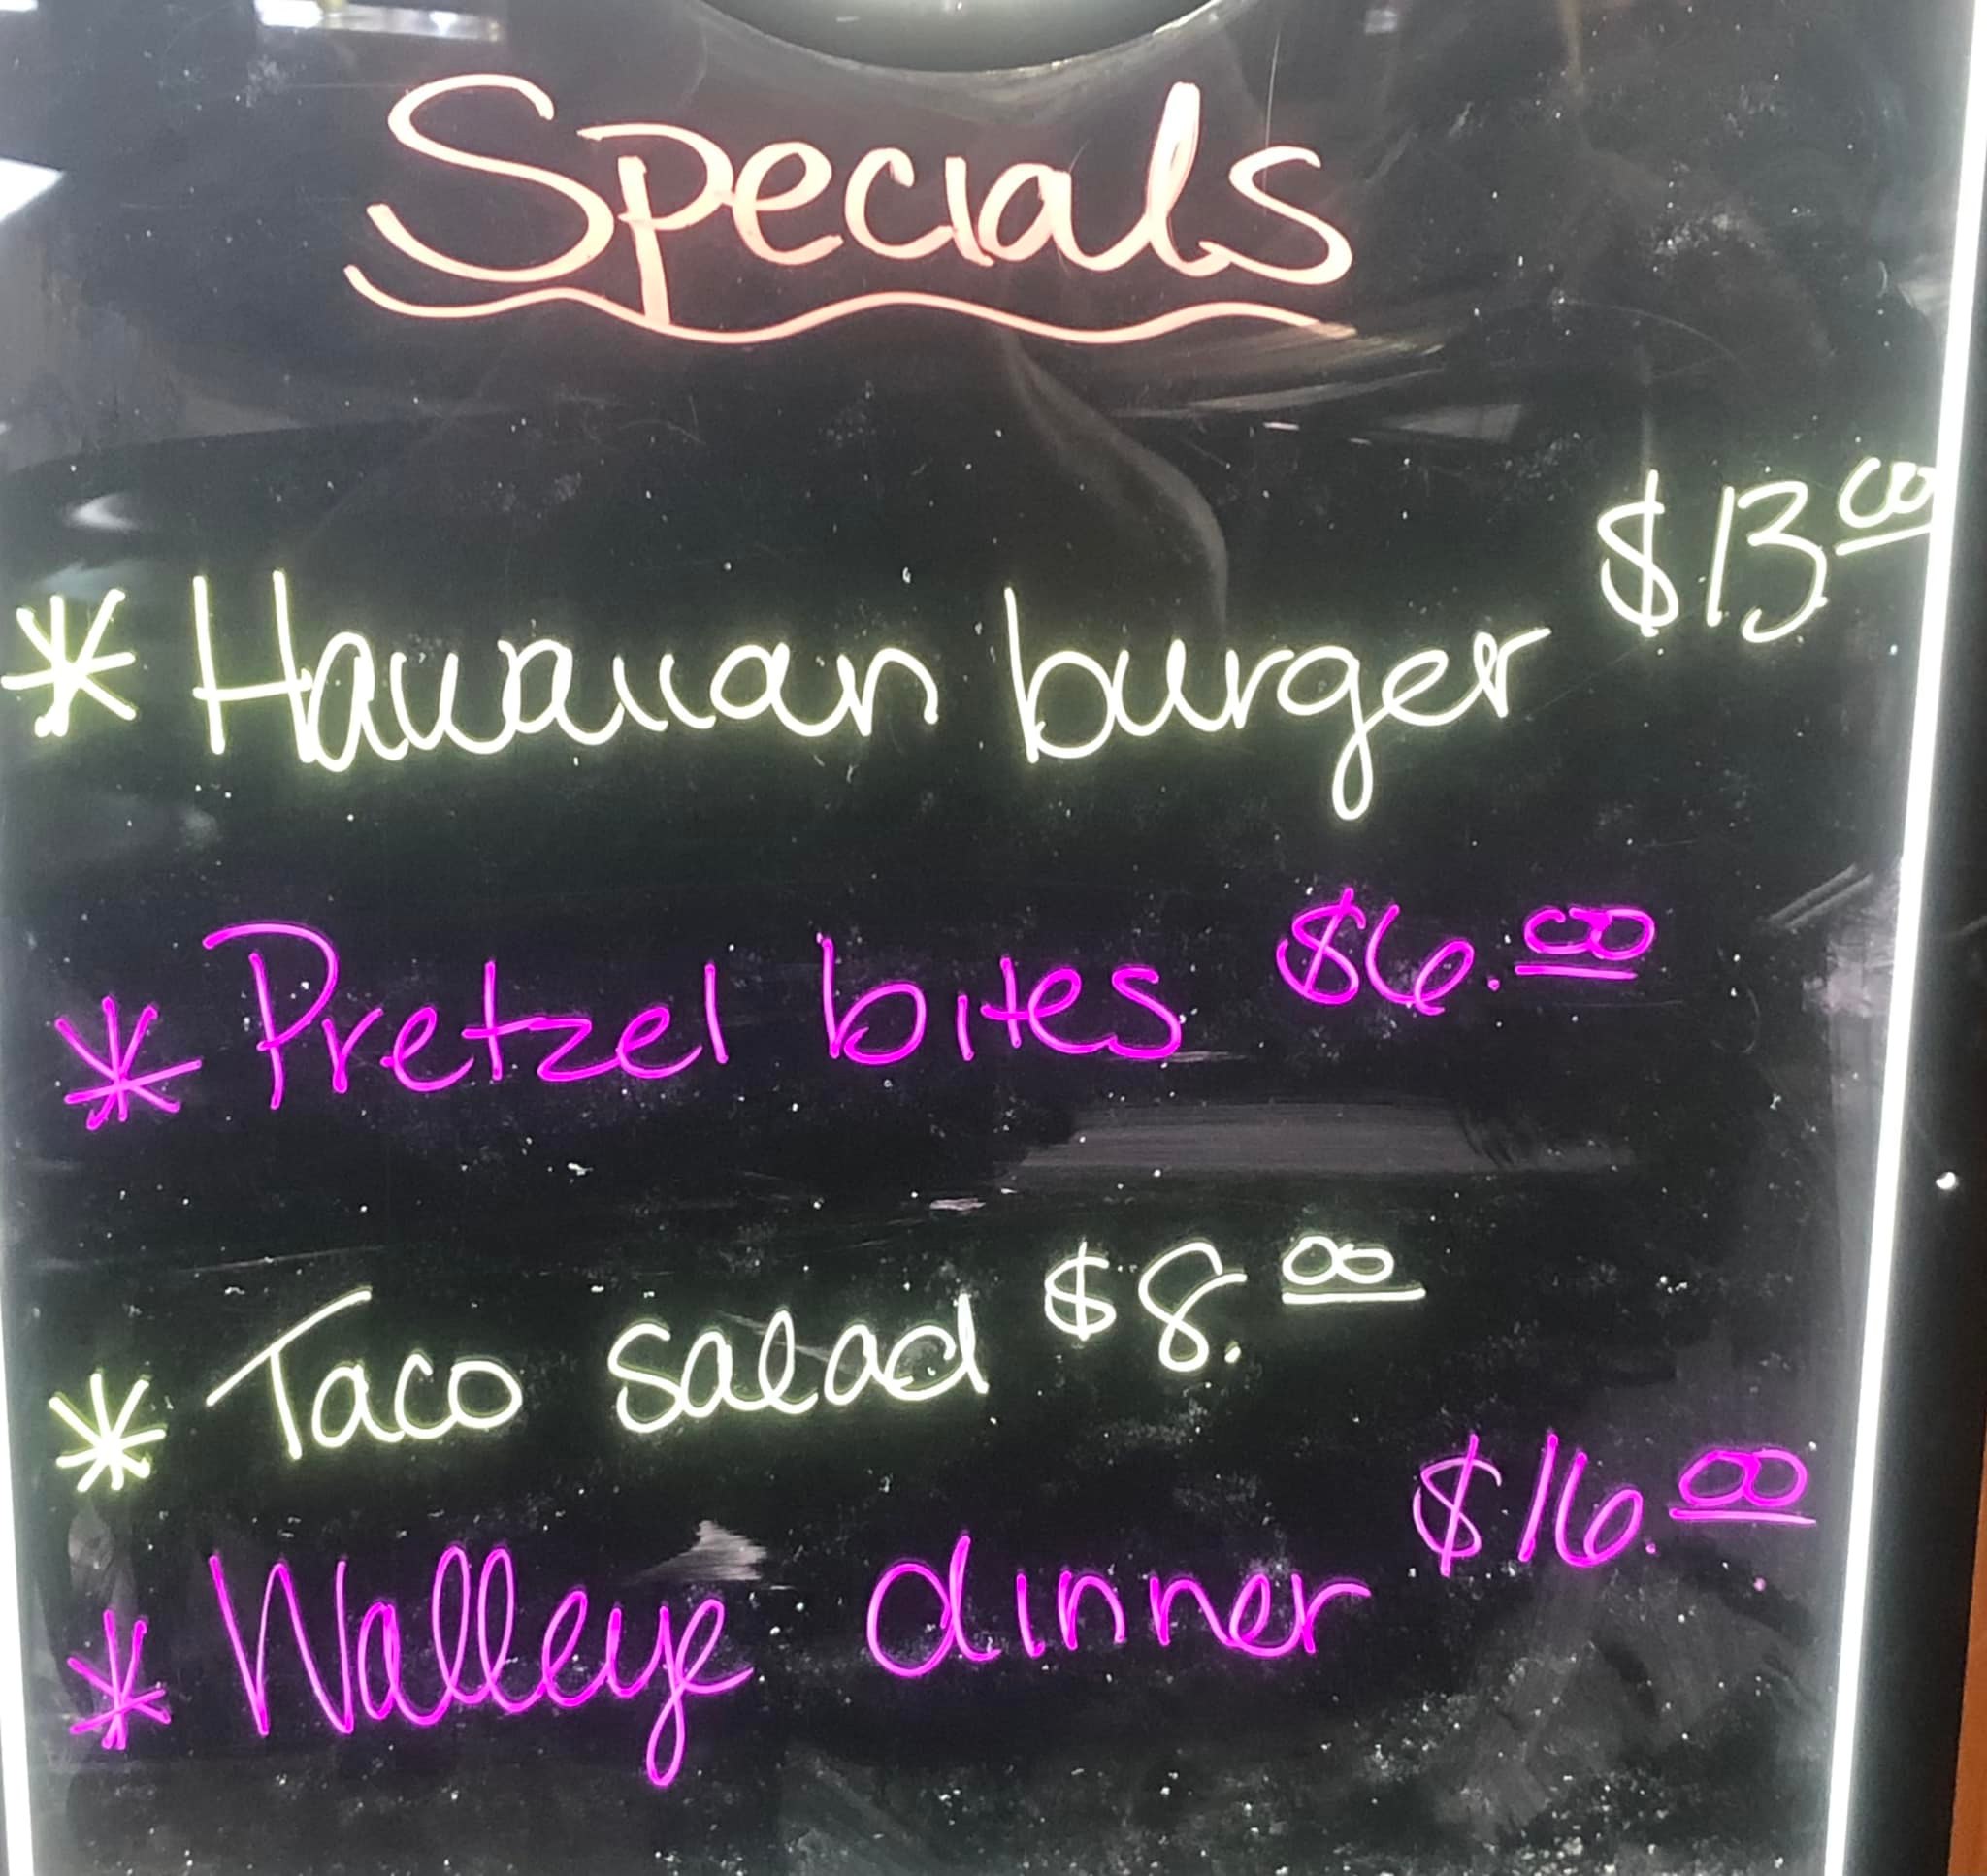 Specials
* Hawaiian burger $13.00
* Pretzel bites $6.00
* Taco salad $8.00
* Walleye dinner $16.00